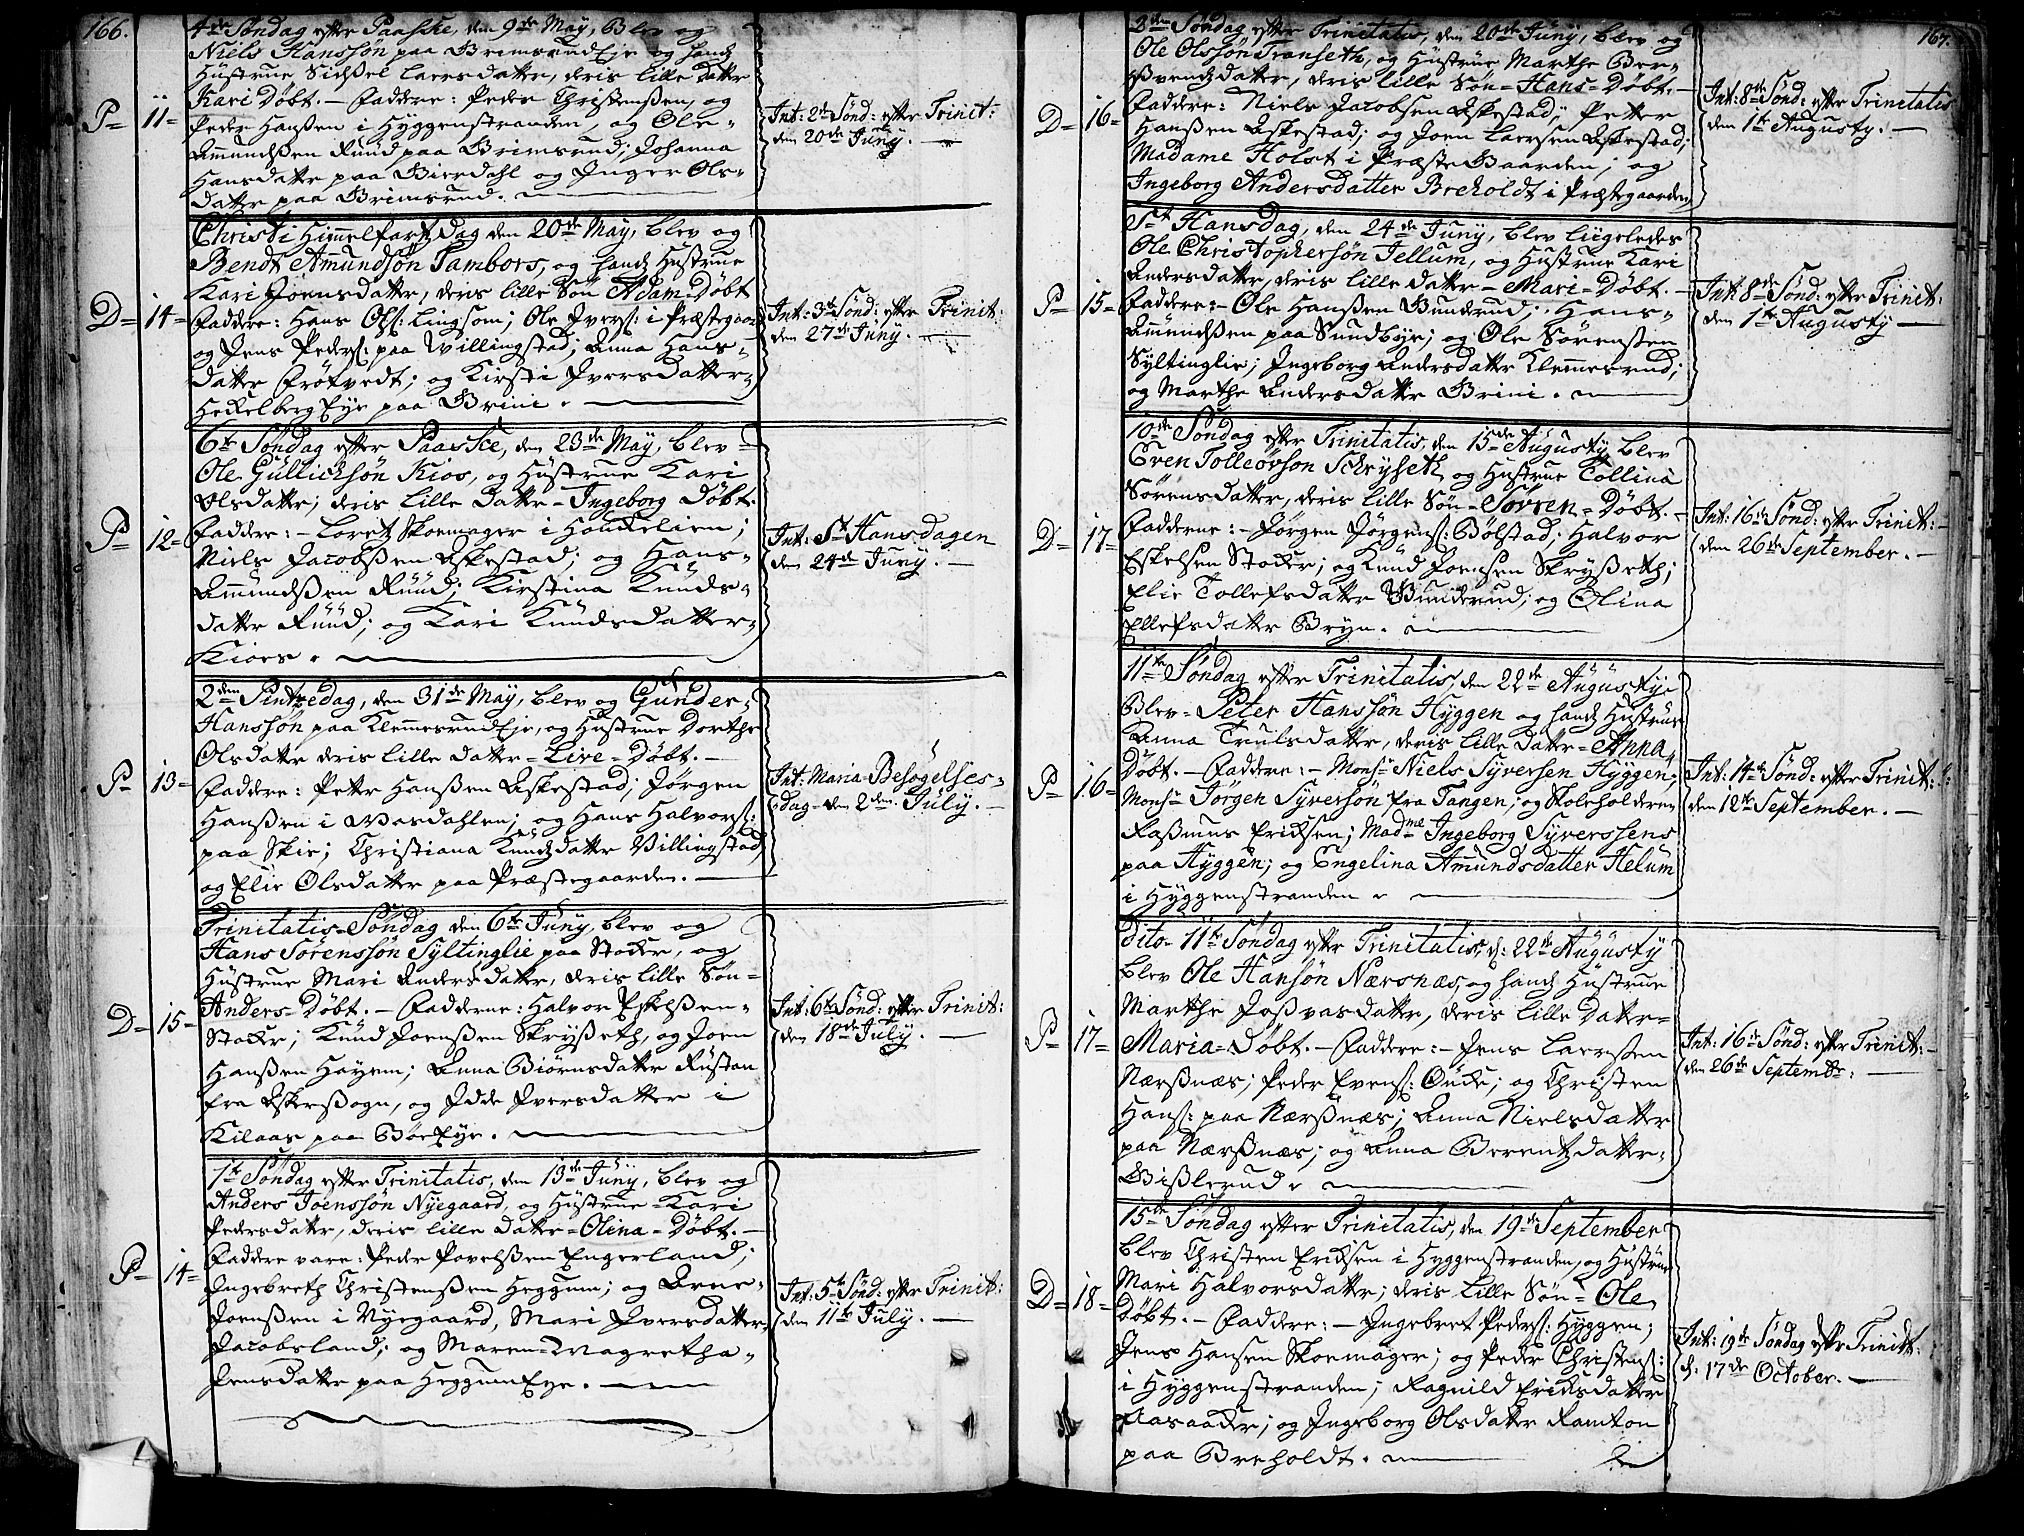 166.
4de Søndag efter Paaske, den 9de May, Blev og
Niels Hanssøn paa BrimsrudEje og hands
Hustrue Sidsel Laersdatter, deris lille datter
Kari Døbt. — Faddere: Peder Christensen, og
Peder Hansen i Hyggenstranden, og Ole
Amundsen Ruud paa Brimsrud; Johanna
Hansdatter paa Bierdahl og Inger Ols-
datter paa Brimsrud.
P= 11=
Int: 2de Sønd: efter Trinit:
den 20de Juny. —
Christi Himmelfartsdag den 20de May, blev og
Bendt Amundsøn Tambors, og hands Hustrue
Kari Joensdatter, deris lille Søn Adam Døbt
Faddere: Hans Ols: Lingsom; Ole Ivers: i Præstegaar
og Jens Peders: paa Willingstad; Anna Hans-
datter Frøtvedt; og Kirsti Iversdatter
HekelbergEye paa Brini.
D= 14=
Int: 3de Sønd: efter Trinit:
den 27de Juny. —
6te Søndag efter Paaske, den 23de May, blev
Ole Gullichsøn Kios, og Hustrue Kari
Olsdatter; deris lille datter = Ingeborg Døbt.
Faddere: — Loretz Skoemager i Houkelien;
Niels Jacobsen Askestad; og Hans
Amundsen Ruud; Kirstina Knuds-
datter Ruud; og Kari Knudsdatter
Kioes.
P= 12=
Int: St Hansdagen
den 24de Juny. —
2den Pintzedag, den 31de May, blev og Gunder
Hanssøn paa KlemmesrudEje, og Hustrue Dorthe
Olsdatter deris lille datter = Live = Døbt. —
Faddere: Petter Hansen Askestad; Jørgen
Hansen i Wasdahlen; og Hans Halvors:
paa Skie; Christiana Knudsdatter Villingstad
og Elie Olsdatter paa Præstegaarden. —
P= 13=
Int: Maria Besøgelses-
dag den 2den July. —
Trinitatis Søndag den 6te Juny, blev og
Hans Sørenssøn Syltinglie paa Stocker, og
Hustrue Mari Andersdatter, deris lille Søn
Anders = Døbt. — Fadderne: Halvor Eskelsen
Stocker; Knud Joensen Skryseth, og Joen
Hansen Høyem; Anna Biørnsdatter Rustan
fra Askersogn, og Idde Iversdatter i
Kilaas paa BøeEye.
D= 15=
Int: 6te Sønd: efter Trinit:
den 18de July. —
1te Søndag efter Trinitatis, den 13de Juny, blev og
Anders Joenssøn Nyegaard, og Hustrue = Kari
Pedersdatter, deris lille datter = Olina = Døbt. —
Faddere vare: Peder Povelsen Engerland;
Ingebreth Christensen Heggum; og Arne
Joensen i Nyegaard, Mari Iversdatter
Jacobsland; og Maren Magretha
Jensdatter paa HeggumEye.
P= 14=
Int: 5te Sønd: efter Trinit:
den 11te July. —
167.
2den Søndag efter Trinitatis, den 20de Juny, blev og
Ole Olssøn Transeth, og Hustrue Marthe Ber-
Svendsdatter, deris lille Søn = Hans = Døbt. —
Faddere: Niels Jacobsen Askestad; Petter
Hansen Askestad; og Joen Laersen Askestad;
Madame Holst i PræsteGaarden; og
Ingeborg Andersdatter Breholdt i Præstegaarden
D= 16=
Int: 8de Sønd: efter Trinitatis
den 1te Augusty. —
St Hansdag, den 24de Juny, blev liigeledes
Ole Christophersøn Jellum, og Hustrue Kari
Andersdatter, deris lille datter = Mari = Døbt. —
Faddere: — Ole Hansen Bunderud; Hans
Amundsen paa Sundbye; og Ole Sørensen
Syltinglie; Ingeborg Andersdatter Klemmesrud;
og Marthe Andersdatter Brini.
P= 15=
Int: 8de Sønd: efter Trinit:
den 1te Augusty —
10de Søndag efter Trinitatis, den 15de Augusty blev
Even Tolleøvsøn Schryseth, og Hustrue Tollina
Sørensdatter, deris lille Søn = Søvren = Døbt. —
Fadderne: — Jørgen Jørgens: Bølstad; Halvor
Eskelsen Stocker; og Knud Joensen Skryseth;
Elie Tollefsdatter Bunderud; og Olina
Ellefsdatter Bryn.
D= 17=
Int: 16de Sønd: efter Trinit: —
den 26de September. —
11te Søndag efter Trinitatis, den 22de Augusty
Blev = Peter Hanssøn Hyggen og hands Hustrue
Anna Trulsdatter, deris lille datter = Anna,
Døbt. — Faddere: — Monsr Niels Syversen Hyggen;
Monsr Jørgen Syversøn fra Tangen; og Skoleholderen
Rasmus Eriksen; Madme Ingeborg Syverssens
paa Hyggen; og Engelina Amundsdatter Helum
i Hyggenstranden.
P= 16=
Int: 14de Sønd: efter Trinit:
den 12te September. —
Dito 11te Søndag efter Trinitatis, d: 22de Augusty
blev Ole Hansøn Nærsnæs, og hands Hustrue
Marthe Josvasdatter, deris lille datter
Maria = Døbt. — Faddere: — Jens Laersen
Nærsnæs; Peder Evens: Oude; og Christen
Hans: paa Nærsnæs; Anna Nielsdatter
paa Nærsnæs; og Anna Berentzdatter
Gislerud.
P= 17=
Int: 16de Sønd: efter Trinit: —
den 26de Septembr: —
15de Søndag efter Trinitatis, den 19de September
blev Christen Eriksen i Hyggenstranden, og Hustrue
Mari Halvorsdatter; deris lille Søn = Ole,
Døbt. — Faddere: — Ingebret Peders: Hyggen;
Jens Hansen Skoemager; og Peder Christens:
i Hyggenstranden; Ragnild Eriksdatter
Aasaaker; og Ingeborg Olsdatter Ramton
paa Breholdt.
D= 18=
Int: 19de Søndag efter Trinit:
d: 17de October. —